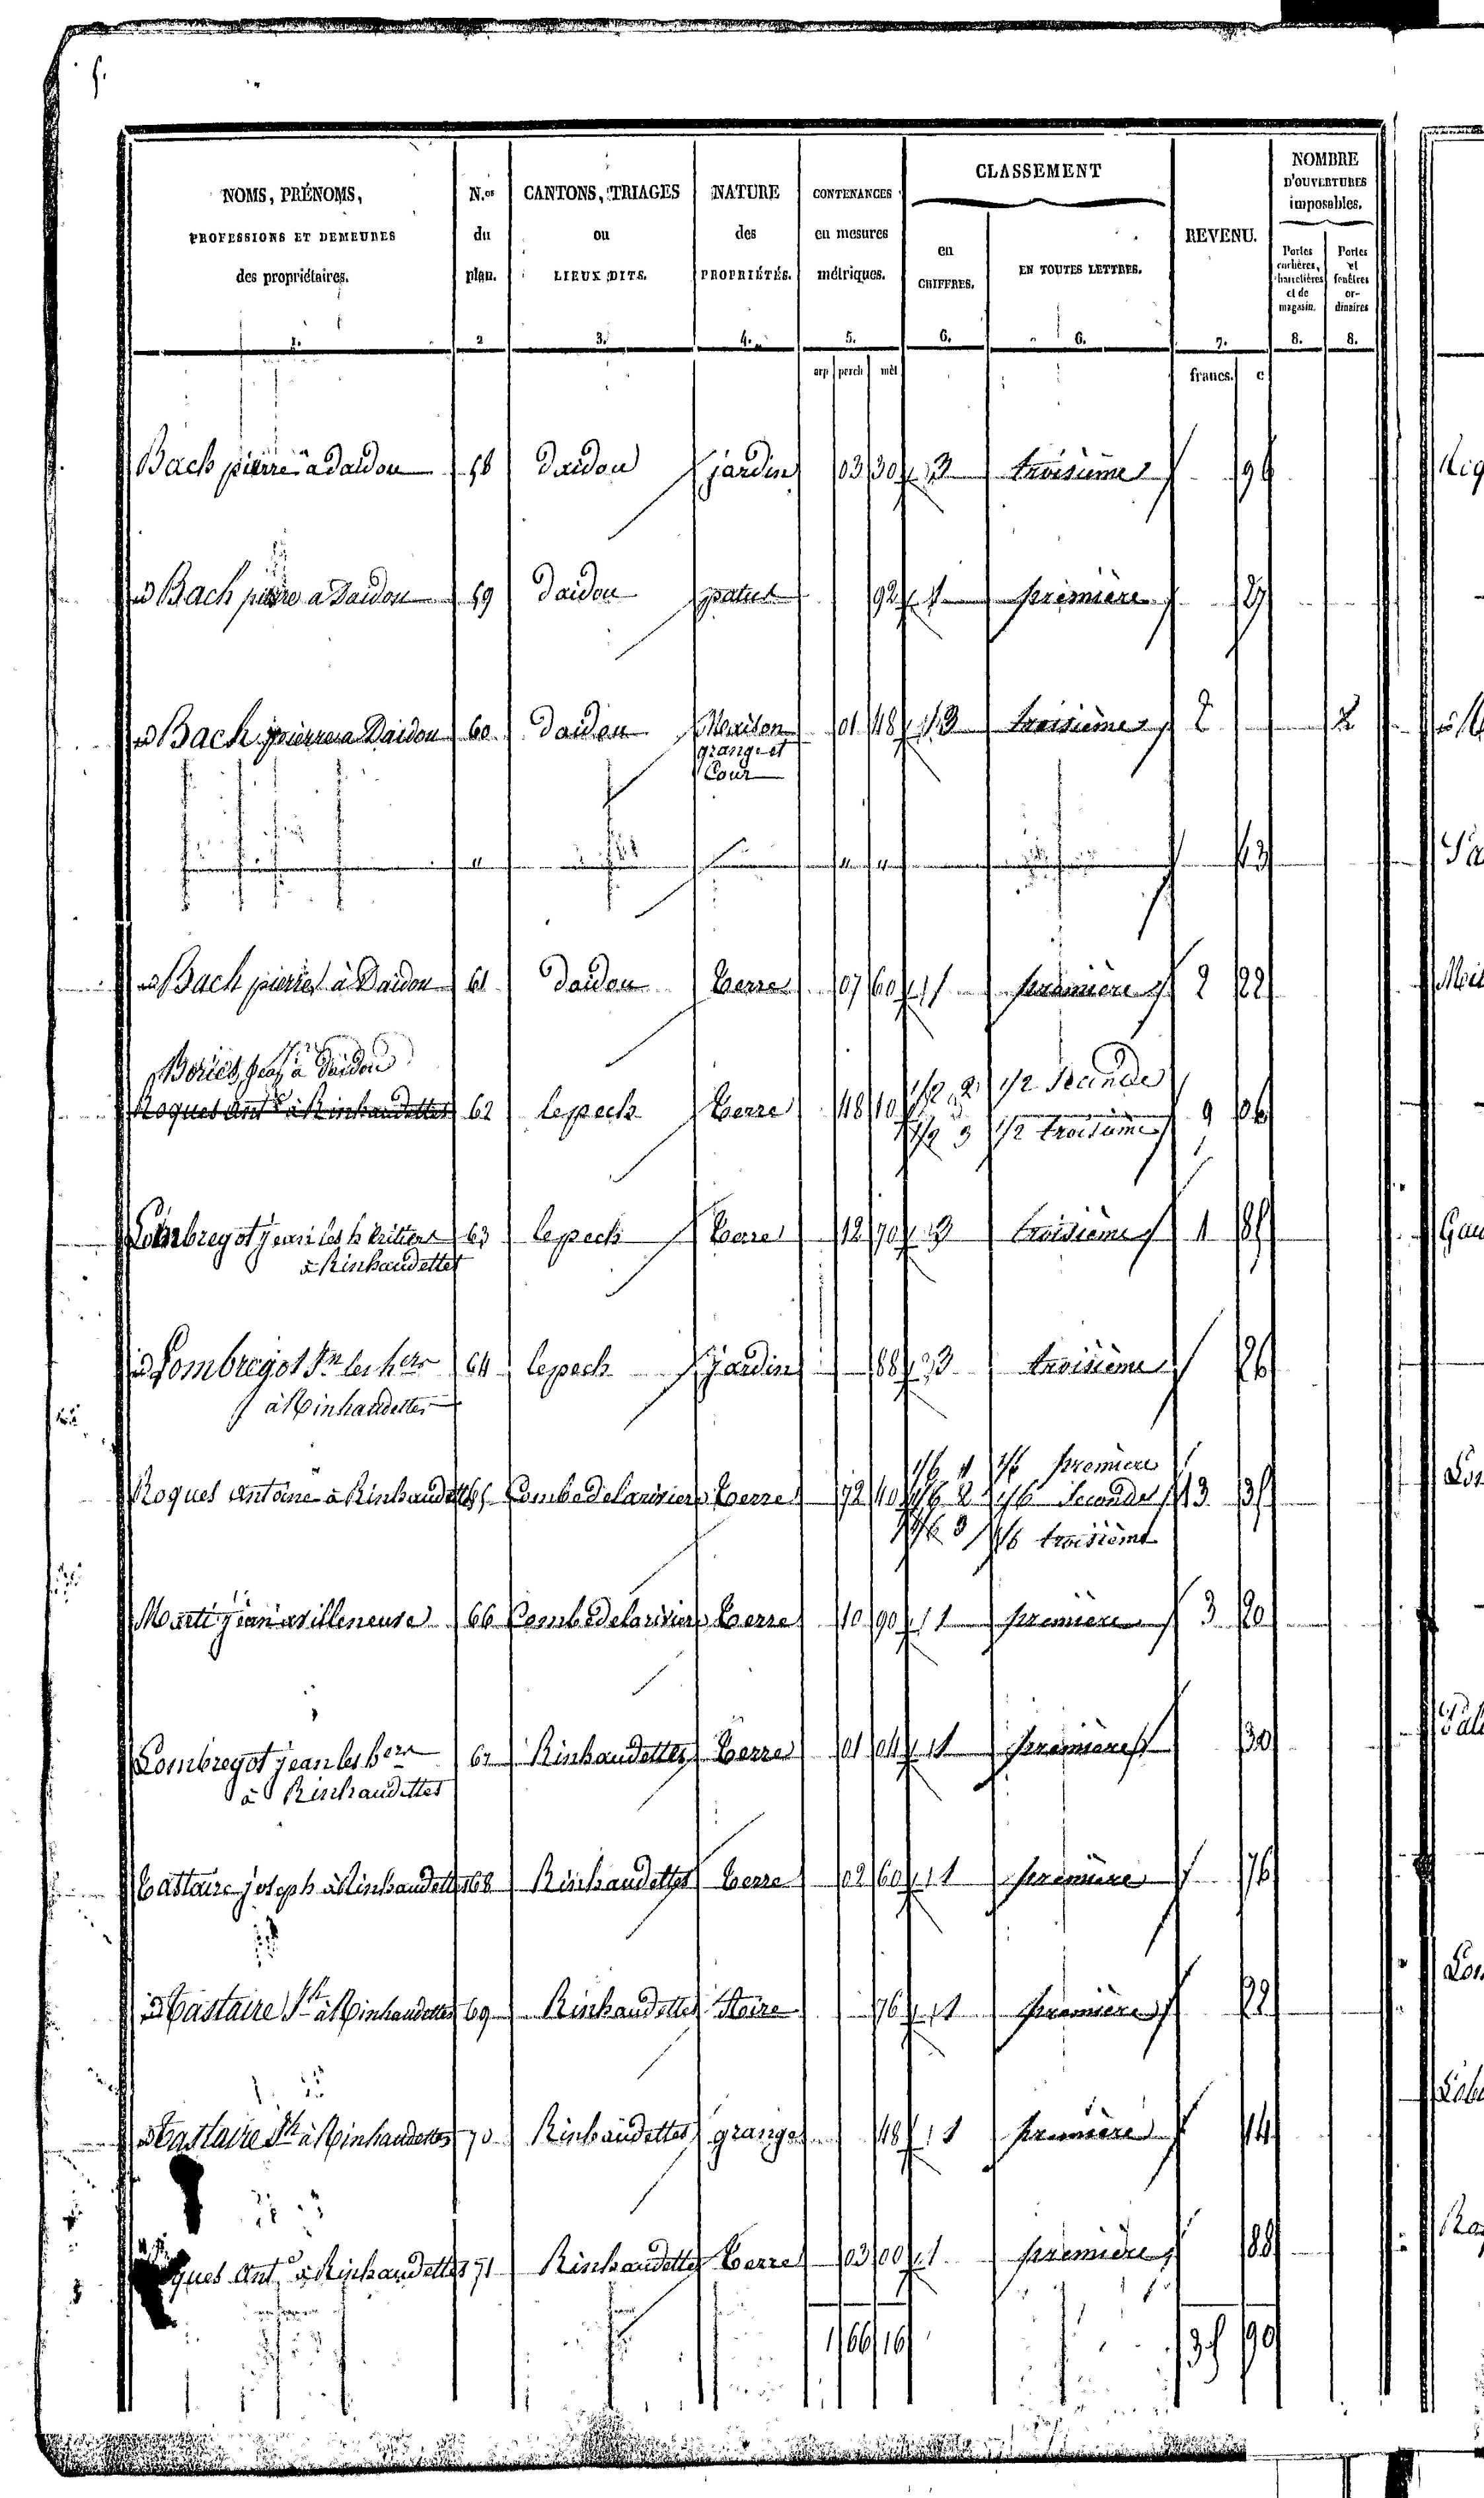 5.
NOMS, PRÉNOMS, PROFESSIONS ET DEMEURES des propriétaires. 1.
N.os du plan. 2
CANTONS, TRIAGES ou LIEUX DITS. 3.
NATURE des PROPRIÉTÉS. 4.
CONTENANCES en mesures métriques. 5.
CLASSEMENT
en CHIFFRES. 6.
EN TOUTES LETTRES. 6.
REVENU. 7.
NOMBRE D'OUVERTURES imposables.
Portes cochères, charretières et de magasin. 8.
Portes et fenêtres ordinaires 8.
arp perch mèt francs. c
Bach pierre a daidou 58 daidou jardin 03 30 3 troisième 96
id Bach pierre a Daidou 59 daidou patus 92 1 première 27
id Bach pierre a Daidou 60 daidou Maison 01 48 3 troisième 2 2
grange et
Cour
" " " 43
id Bach pierre à Daidou 61 daidou terre 07 60 1 première 2 22
Bories à Daidou 1/2 2 1/2 Seconde
Roques Ant.e à Rinhaudettes 62 lepech terre 48 10 9 06
1/2 3 1/2 troisième
Lombregot jean les héritiers 63 lepech terre 12 70 3 troisième 1 85
à Rinhaudettes
id Lombregot Jn les hers 64 lepech jardin 88 3 troisième 26
à Rinhaudettes
1/6 1 1/6 première
Roques antoine à Rinhaudettes 65 Combedelariviere terre 72 40 1/6 2 1/6 Seconde 13 35
4/6 3 4/6 troisième
Marti jean a villeneuve 66 Combedelariviere terre 10 90 1 première 3 20
Lombregot jean les hers 67 Rinhaudettes terre 01 04 1 première 30
à Rinhaudettes
Castaire joseph à Rinhaudettes 68 Rinhaudettes terre 02 60 1 première 76
id Castaire Jh à Rinhaudettes 69 Rinhaudettes 76 1 première 22
id Castaire Jh à Rinhaudettes 70 Rinhaudettes grange 48 1 première 14
Roques Ant.e à Rinhaudettes 71 Rinhaudettes terre 03 00 1 première 88
1 66 16 35 90